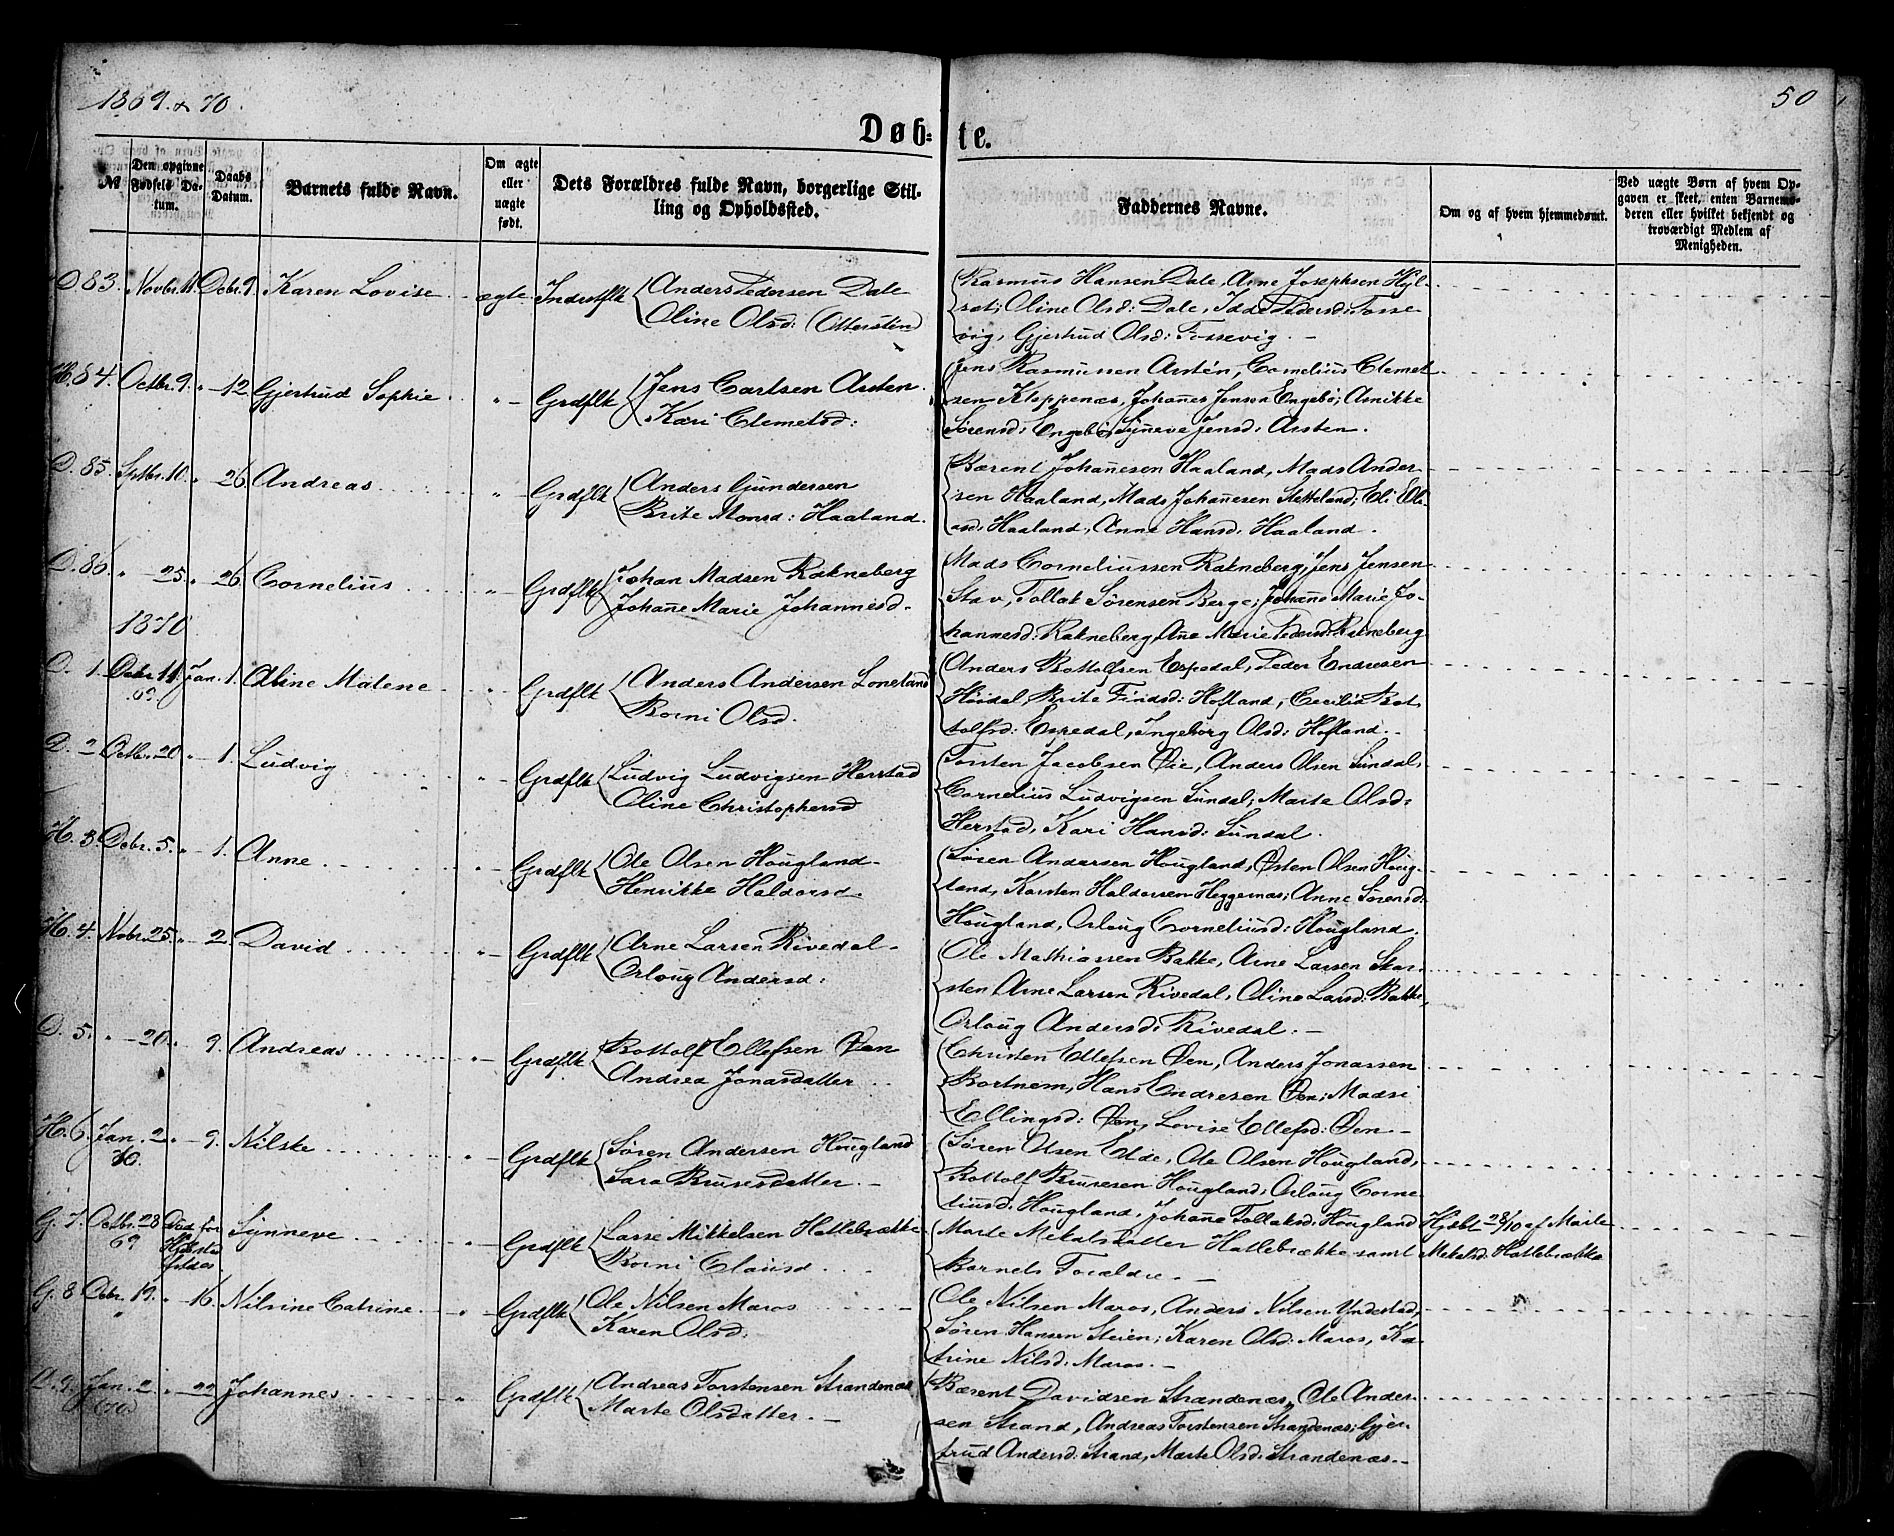 1869 & 70.
50
Døb- te.
№
Den opgivne Fødsels Datum.
Daabs Datum.
Barnets fulde Navn.
Om ægte eller uægte født.
Dets Forældres fulde Navn, borgerlige Stilling og Opholdssted.
Faddernes Navne.
Om og af hvem hjemmedømt.
Ved uægte Børn af hvem Opgaven er skeet, enten Barnemoderen eller hvilket bekjendt og troværdigt Medlem af Menigheden.
D 83. Novbr. 11. Debr. 9. Karen Lovise ægte Indrstflk Anders Pedersen Dale
Oline Olsd: (Otterstein)
Rasmus Hansen Dale, Arne Josephsen Hyl-
sæt; Oline Olsd: Dale, Pedersd: Fosse-
vig, Gjertrud Olsd: Fossevig. -
H. 84. Octbr. 9. " - 12 Gjertrud Sophie " - Grdflk Jens Carlsen Arsten
Kari Clemetsd:
Jens Rasmussen Arsten, Cornelius Clemet-
sen Kleppenæs, Johannes Jensen Engebø; Annikke
Sørensd: Engebø, Synneve Jensd: Arsten.
D. 85. Septbr. 10. " 26. Andreas " - Grdflk Anders Gundersen
Brite Monsd: Haaland.
Bærent Johanesen Haaland, Mads Ander-
sen Haaland, Mads Johanesen Sletteland; Eli Ole-
asd: Haaland, Anne Hansd: Haaland.
D. 86. " - 25. " 26 Cornelius " - Grdflk Johan Madsen Rakneberg
Johane Marie Johannesd.
Mads Corneliussen Rakneberg, Jens Jensen
Stav, Tollak Sørensen Berge; Johane Marie Jo-
hannesd: Rakneberg, Ane Marie Pedersd: Rakneberg
1870
D. 1. Debr. 11. 69. Jan. 1. Oline Malene " Grdflk Anders Andersen Loneland
Borni Olsd.
Anders Bottolfsen Espedal, Peder Endresen
Høidal, Brite Findsd: Hofland, Cecilia Bot-
tolfsd: Espedal, Ingeborg Olsd: Hofland. -
D. 2 Octbr. 20 " - 1. Ludvig " - Grdflk Ludvig Ludvigsen Herstad
Oline Christophersd
Torsten Jacobsen Øie, Anders Olsen Sundal,
Cornelius Ludvigsen Sundal; Marte Olsd:
Herstad, Kari Hansd: Sundal.
H. 3. Debr. 5. " - 1. Anne " - Grdflk Ole Olsen Hougland -
Henrikke Haldorsd -
Søren Andersen Hougland, Østen Olsen Houg-
land, Karsten Haldorsen Heggenæs; Anne Sørensd:
Hougland, Orloug Corneliusd: Hougland.
H. 4. Nobr. 25. " - 2. David " - Grdflk Arne Larsen Rivedal -
Orloug Andersd:
Ole Mathiassen Bakke, Arne Larsen Skar-
sten Arne Larsen Rivedal, Oline Larsd: Bakke,
Orloug Andersd: Rivedal. -
D. 5. " - 20. " - 9. Andreas " - Grdflk Bottolf Ellefsen Øen
Andrea Jonasdatter
Christen Ellefsen Øen, Anders Jonassen
Bortnem, Hans Endresen Øen; Madsi
Ellingsd: Øen, Lovise Ellefsd: Øen -
H. 6. Jan. 2. 70. " - 9. Nilske " - Grdflk Søren Andersen Hougland
Sara Brunesdatter. -
Søren Olsen Elde, Ole Olsen Hougland,
Bottolf Brunesen Hougland, Orloug Corne-
liusd: Hougland, Johane Tollaksd: Hougland
G. 7. Octbr. 28 69 Død før Synneve " - Grdflk Lasse Mikkelsen Hatlebrække
Borni Clausd
Marte Mekalsdatter Hatlebrække samt
Barnets Forældre. -
Hjdbt 28/10 af Marte
Mekalsd. Hatlebrække
G. 8 Debr. 19. " " - 16. Nilsine Catrine " - Grdflk Ole Nilsen Maros
Karen Olsd:
Ole Nilsen Maros, Anders Nilsen Yndestad,
Søren Hansen Steien; Karen Olsd: Maros, Ka-
trine Nilsd: Maros. -
D. 9. Jan. 2. (70.) " - 22 Johannes " Grdflk Andreas Torstensen Strandenæs
Marte Olsdatter. -
Bærent Davidsen Strandenæs, Ole Ander-
sen Strand, Andreas Torstensen Strandenæs; Gjer-
trud Andersd: Strand, Marte Olsd: Strandenæs. -